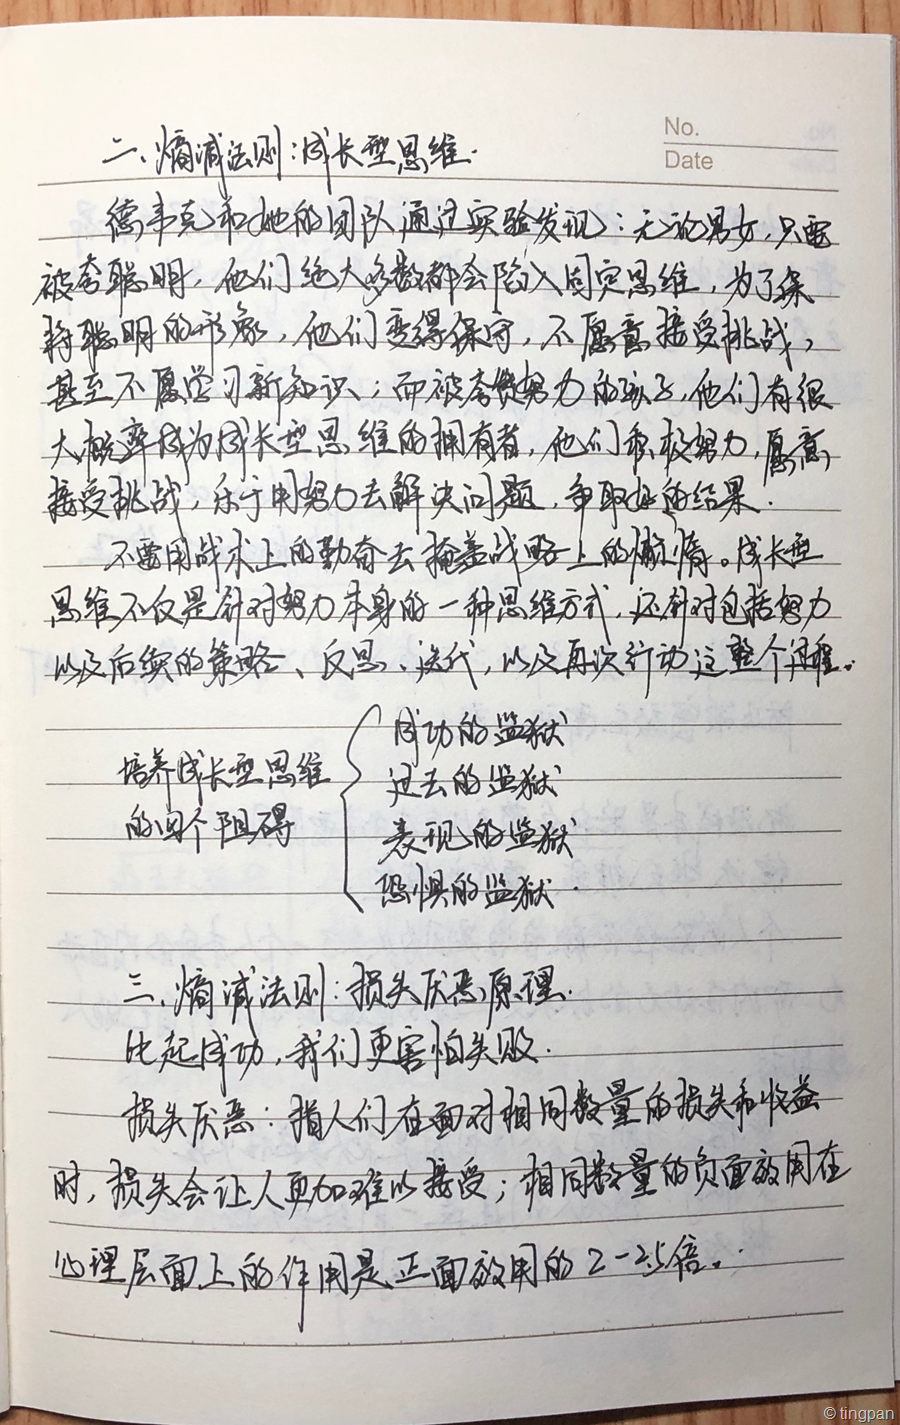 No.
Date
二、熵减法则：成长型思维.
德韦克和她的团队通过实验发现：无论男女，只要
被夸聪明，他们绝大多数都会陷入固定思维，为了保
持聪明的形象，他们变得保守，不愿意接受挑战，
甚至不愿学习新知识；而被夸赞努力的孩子，他们有很
大概率成为成长型思维的拥有者，他们积极努力，愿意
接受挑战，乐于用努力去解决问题，争取好的结果.
不要用战术上的勤奋去掩盖战略上的懒惰。成长型
思维不仅是针对努力本身的一种思维方式，还针对包括努力
以及后续的策略、反思、迭代，以及再次行动这整个过程。
培养成长型思维
的四个阻碍
成功的监狱
过去的监狱
表现的监狱
恐惧的监狱.
三、熵减法则：损失厌恶原理.
比起成功，我们更害怕失败.
损失厌恶：指人们在面对相同数量的损失和收益
时，损失会让人更加难以接受；相同数量的负面效用在
心理层面上的作用是正面效用的2-2.5倍。
© tingpan